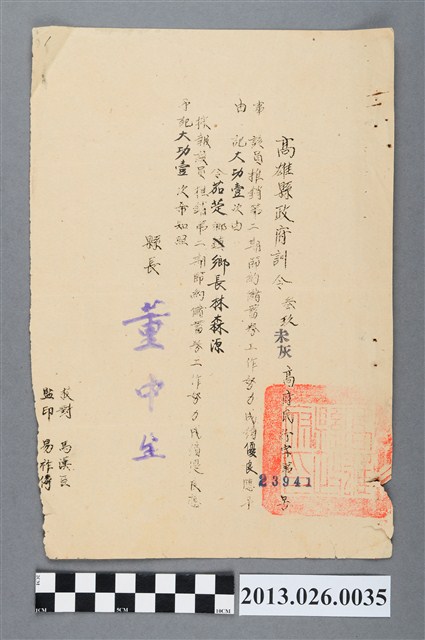 高雄縣政府訓令 叁玖未灰 高府民人字第 23941 號
事由 該員推銷第二期節約儲蓄券工作努力成績優良應予
記大功壹次由
令茄萣鄉鄉長林森源
據報該員推銷第二期節約儲蓄券工作努力成績優良應
予記大功壹次希知照
縣長 董中生
校對 馬漢良
監印 易祚
0CM
5CM
10CM
2013.026.0035